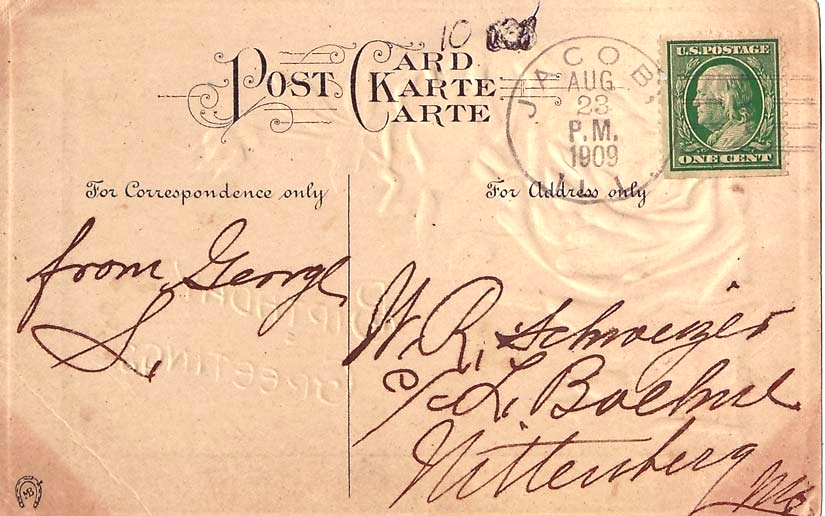 10
POST CARD
KARTE
CARTE
JACOB, ILL.
AUG
23
P.M.
1909
U.S. POSTAGE
ONE CENT
For Correspondence only
For Address only
from George
S.
W. R. Schweizer
c/o L. Boehme
Wittenberg
Mo
BIRTHDAY
GREETINGS
MB